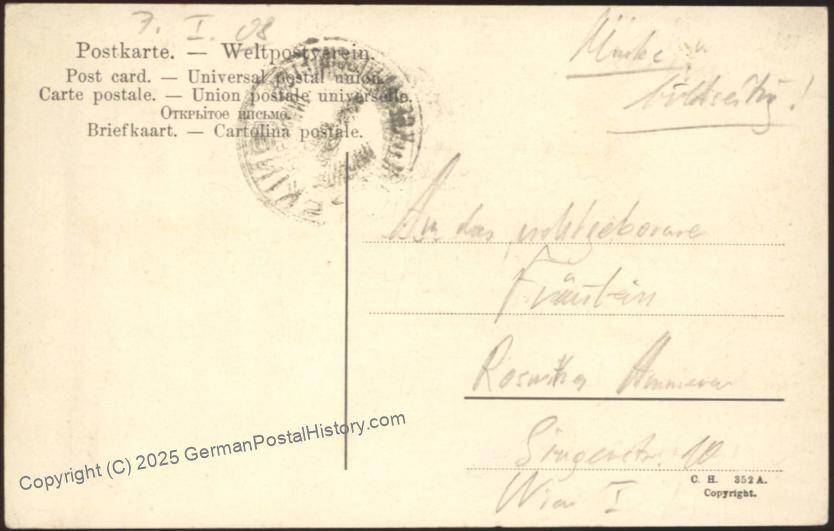 7. I. 08
Postkarte. — Weltpostverein.
Post card. — Universal postal union.
Carte postale. — Union postale universelle.
Открытое письмо.
Briefkaart. — Cartolina postale.
Marke
bildseitig!
An das
Fräulein
Roswitha
Singerstr. 10
Wien I
C. H. 352 A.
Copyright.
Copyright (C) 2025 GermanPostalHistory.com